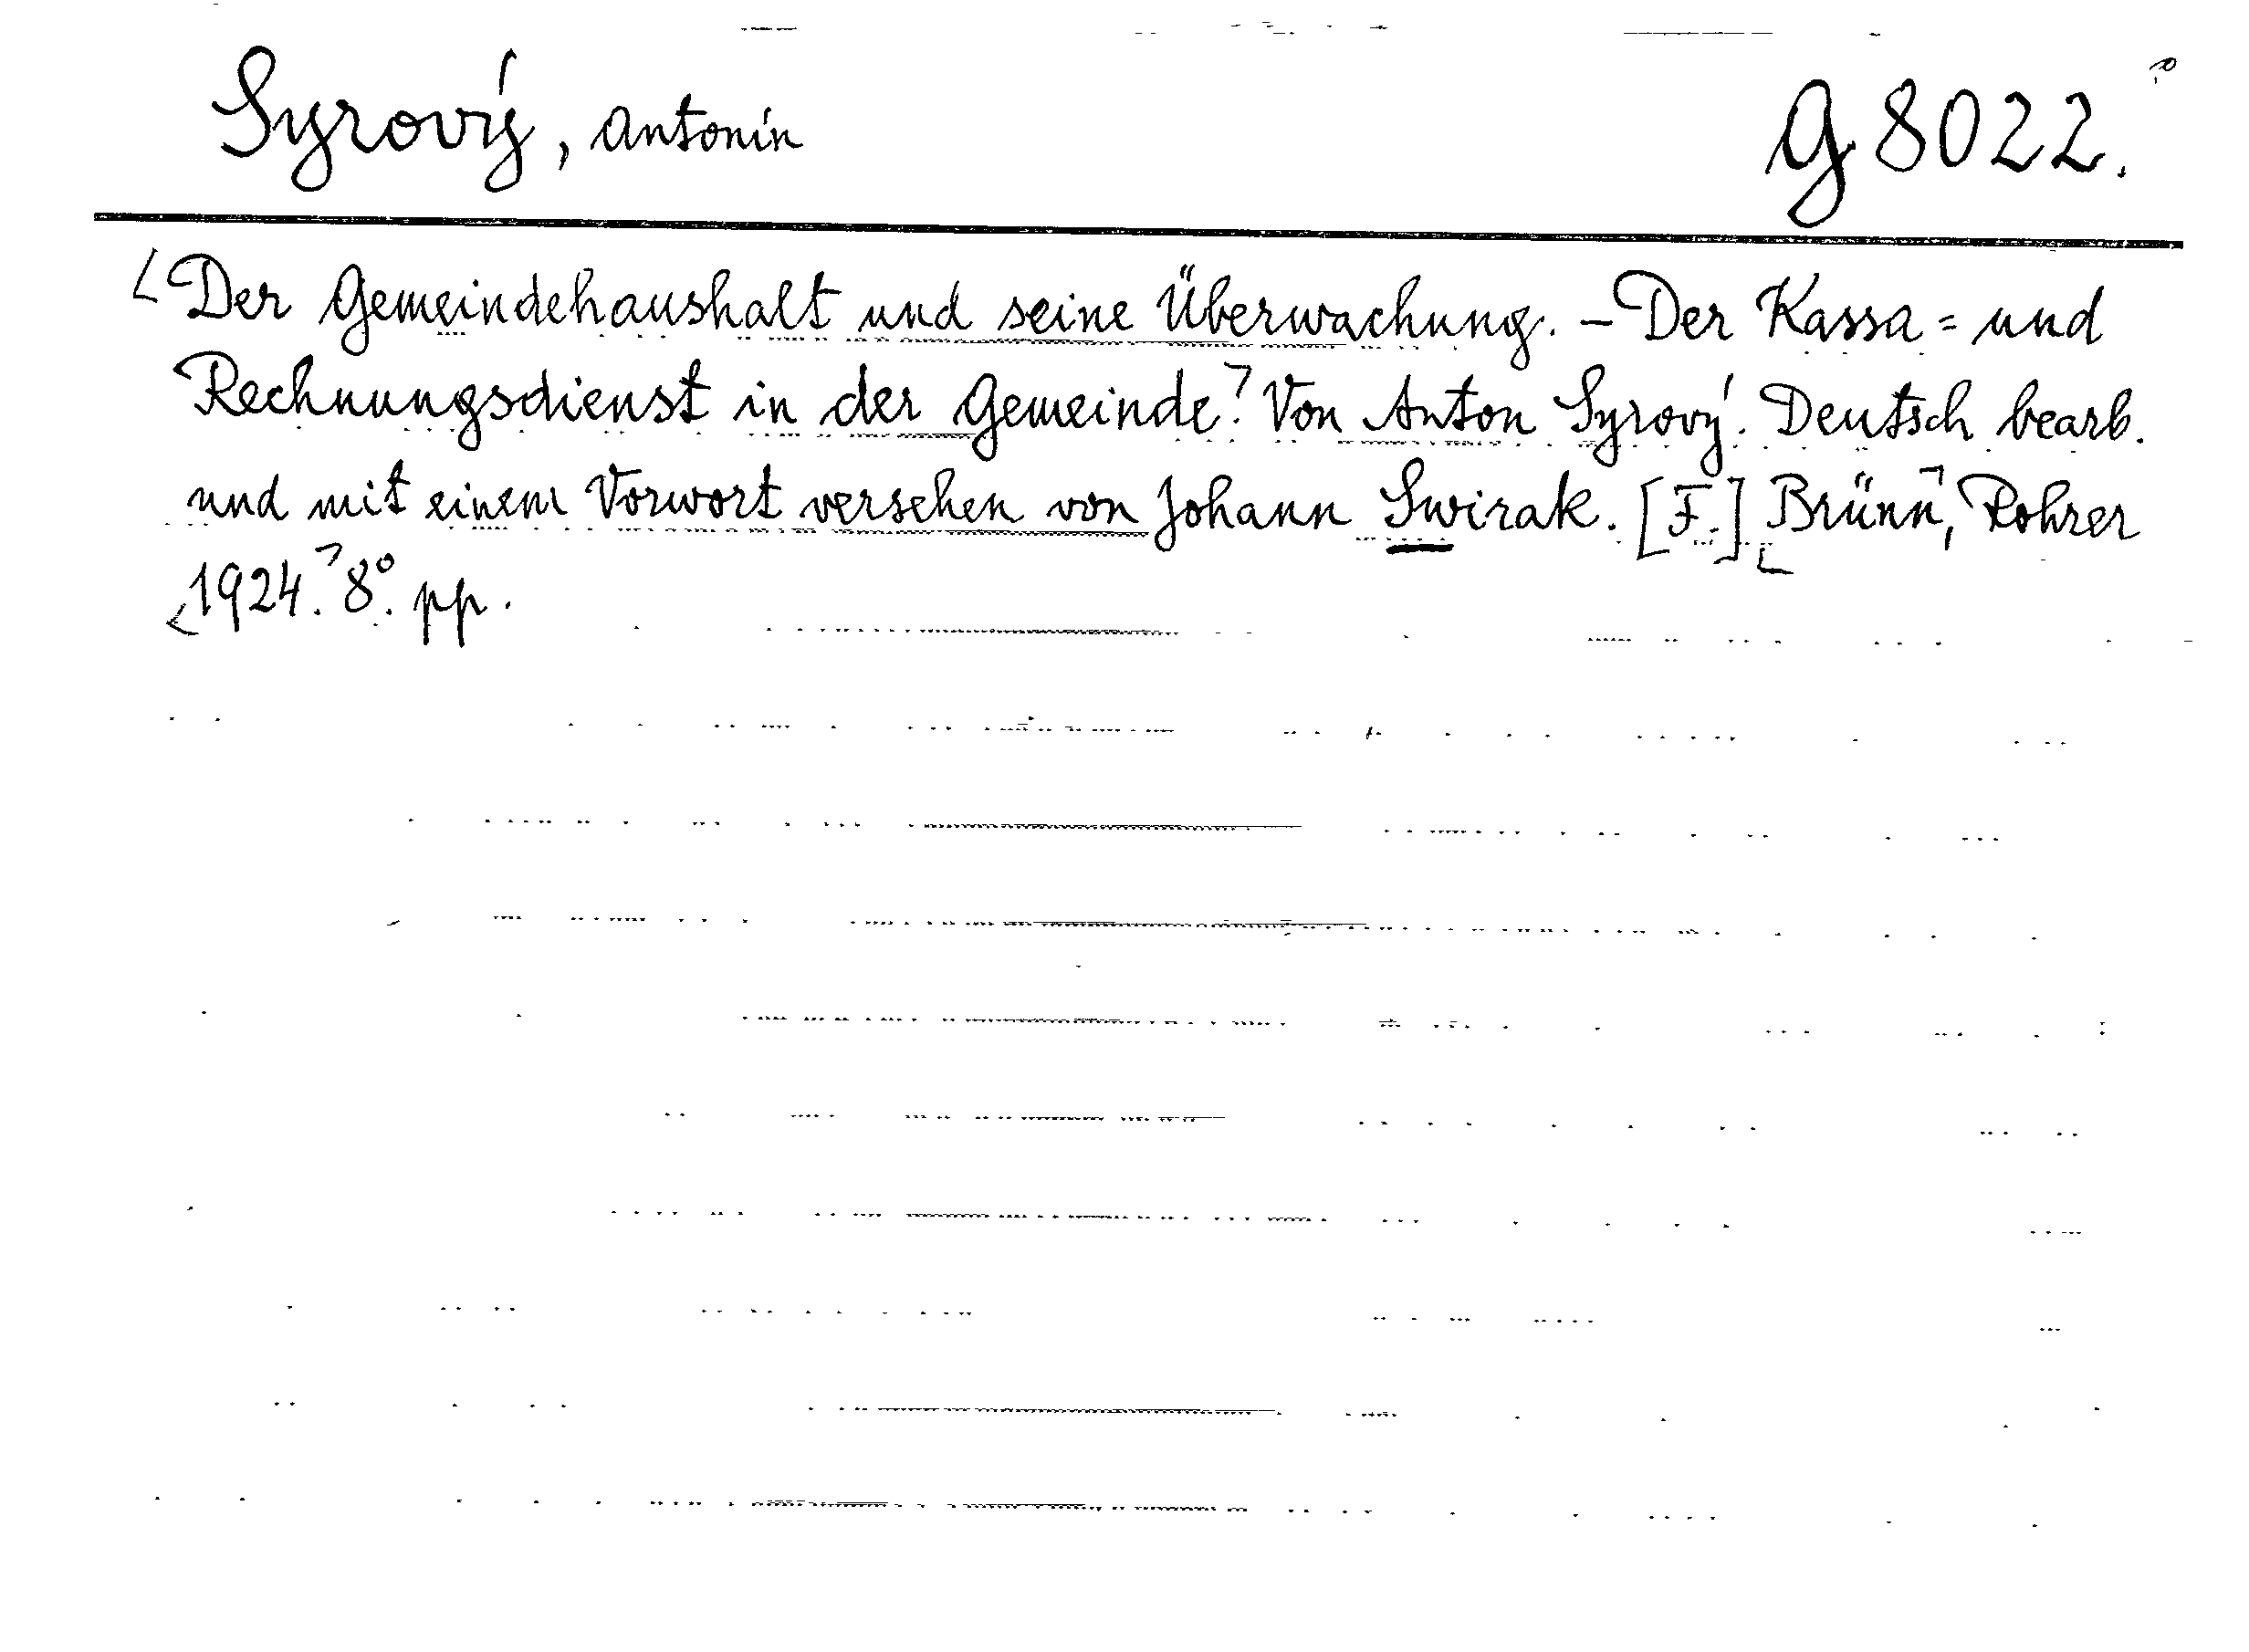 Syrový, Antonín G 8022.
Der Gemeindehaushalt und seine Überwachung. – Der Kassa= und
Rechnungsdienst in der Gemeinde. Von Anton Syrový. Deutsch bearb.
und mit einem Vorwort versehen von Johann Swirak. [F.] Brünn, Rohrer
1924. 8°. pp.